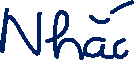 Nhắc